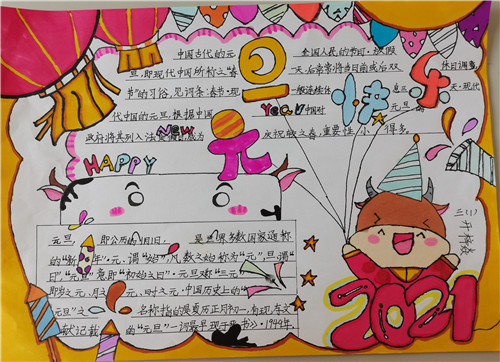 中国古代的元
旦,即现代中国所称之"春
节"的习俗,见词条:春节.现
代中国的元旦,根据中国
政府将其列入法
成为
全国人民的节日.放假
一天,后常常将当日前或后双
休日调整
一般连续休息三天.现代
中国对元旦的
庆祝较之春
重要性小得多.
元旦快乐
HAPPY
NEW
Year
元旦,即公历的1月1日,是世界多数国家通称
的"新年".元,谓"始",凡数之始称为"元";旦,谓
"日";"元旦"意即"初始之日".元旦又称"三元",
即岁之元、月之元、时之元.中国历史上的
"元旦"之
名称指的是夏历正月初一,
献记载的"元旦"一词最早现于
1949年
三(1)
2021